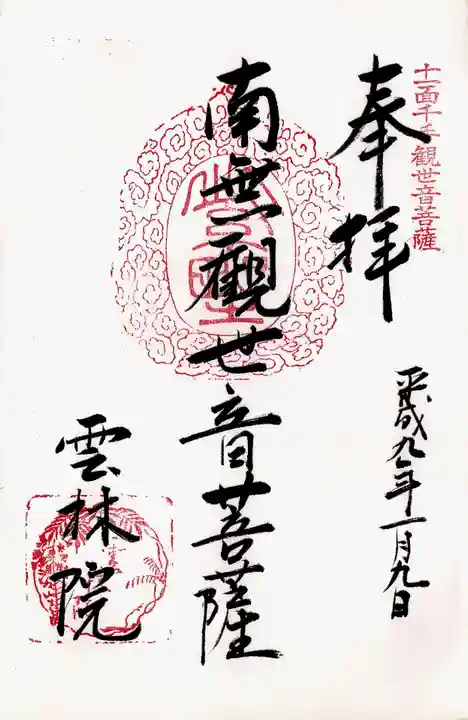 十一面千手觀世音菩薩
奉拝
平成九年一月九日
南無観世音菩薩
雲林院